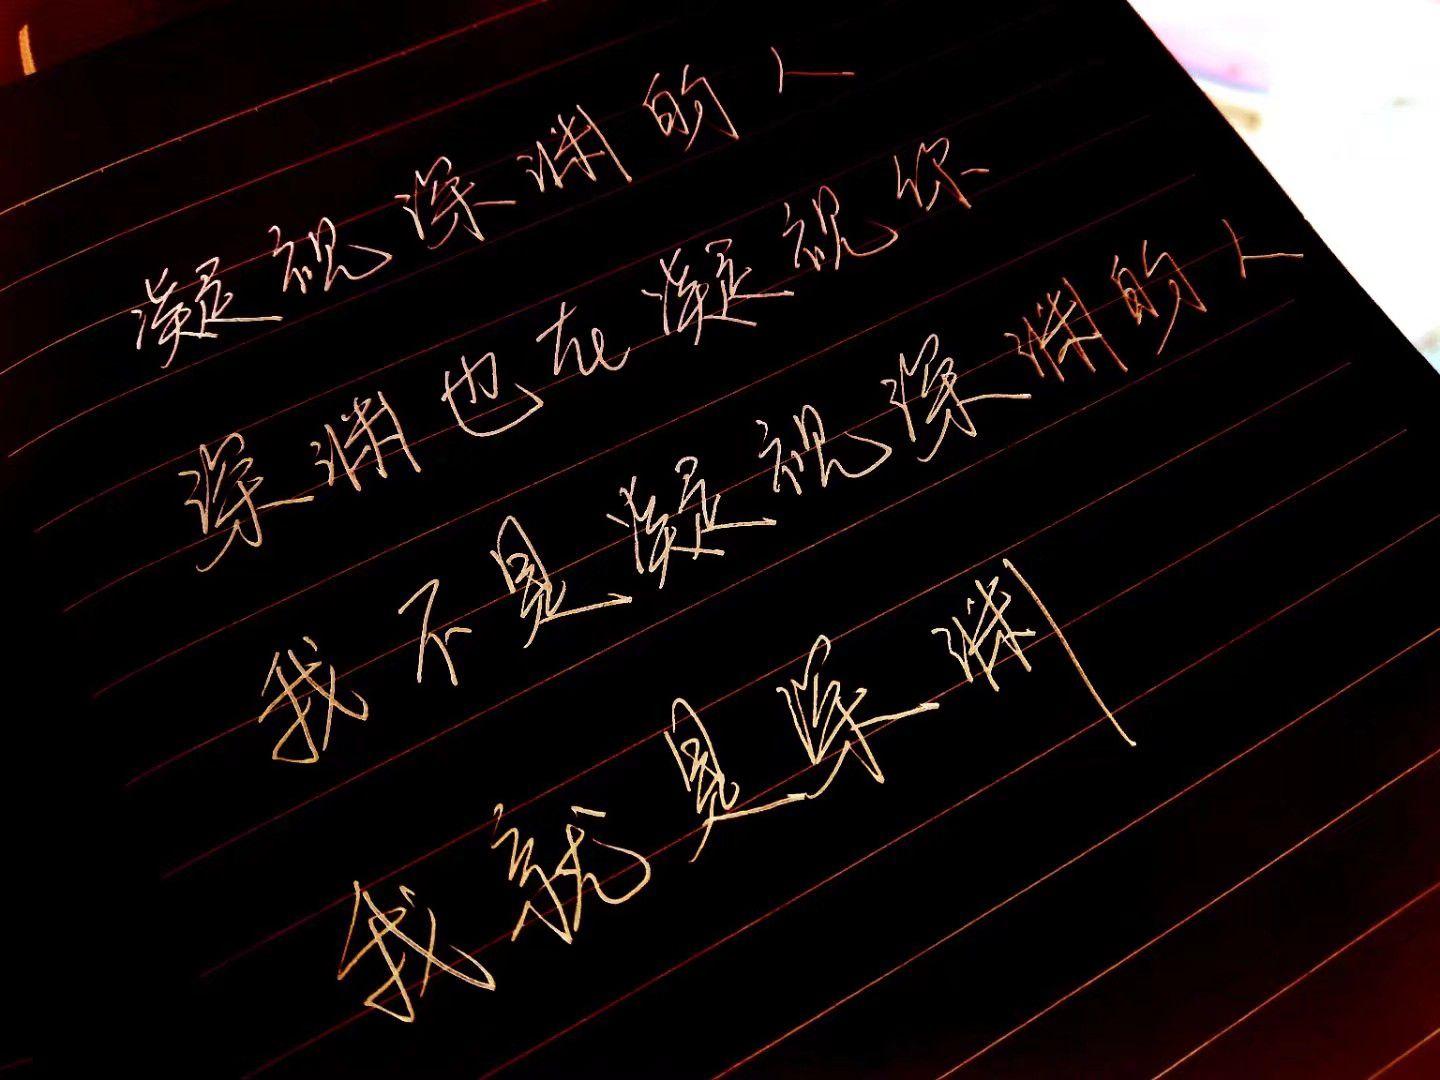 凝视深渊的人
深渊也在凝视你
我不是凝视深渊的人
我就是深渊